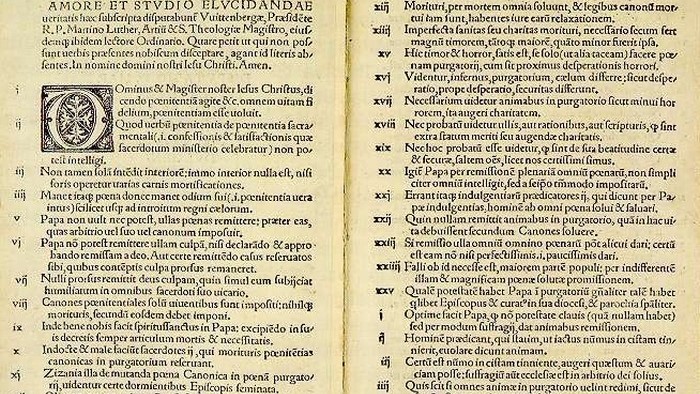 AMORE ET STVDIO ELVCIDANDAE
ueritatis hæc subscripta disputabunť Vuittenbergæ, Præsidēte
R. P. Martino Luther, Artiū & S. Theologiæ Magistro, eius-
demq; ibidem lectore Ordinario. Quare petit ut qui non pos-
sunt uerbis præsentes nobiscum disceptare, agant id literis ab-
sentes. In nomine domini nostri Iesu Christi. Amen.
i Ominus & Magister noster Iesus Christus, di
cendo pœnitentiā agite &c. omnem uitam fi
delium, pœnitentiam esse uoluit.
ij Quod uerbū pœnitentia de pœnitentia sacra
mentali (.i. confessionis & satisfactionis quæ
sacerdotum ministerio celebratur) non po-
test intelligi.
iij Non tamen solā intēdit interiorē: immo interior nulla est, nisi
foris operetur uarias carnis mortificationes.
iiij Manet itaq; pœna donec manet odium sui (.i. pœnitentia uera
intus) scilicet usq; ad introitum regni cælorum.
v Papa non uult nec potest, ullas pœnas remittere; præter eas,
quas arbitrio uel suo uel canonum imposuit.
vj Papa nō potest remittere ullam culpā, nisi declarādo & appro
bando remissam a deo. Aut certe remittēdo casus reseruatos
sibi, quibus contēptis culpa prorsus remaneret.
vij Nulli prorsus remittit deus culpam, quin simul eum subijciat
humiliatum in omnibus sacerdoti suo uicario.
viij Canones pœnitentiales solū uiuentibus sunt impositi; nihilq;
morituris, secundū eosdem debet imponi.
ix Inde bene nobis facit spiritussanctus in Papa: excipiēdo in su/
is decretis semper articulum mortis & necessitatis.
x Indocte & male faciūt sacerdotes ij, qui morituris pœnitētias
canonicas in purgatorium reseruant.
xj Zizania illa de mutanda pœna Canonica in pœnā purgato/
rij, uidentur certe dormientibus Episcopis seminata.
xiij Morituri, per mortem omnia soluunt, & legibus canonū mor-
tui iam sunt, habentes iure earū relaxationem.
xiiij Imperfecta sanitas seu charitas morituri, necessario secum fert
magnū timorem, tātoq; maiorē, quāto minor fuerit ipsa.
xv Hic timor & horror, satis est, se solo (ut alia taceam) facere pœ-
nam purgatorij, cum sit proximus desperationis horrori.
xvj Videntur, infernus, purgatorium, cælum differre; sicut despe/
ratio, prope desperatio, securitas differunt.
xvij Necessarium uidetur animabus in purgatorio sicut minui hor
rorem, ita augeri charitatem.
xviij Nec probatū uidetur ullis, aut rationibus, aut scripturis, q; sint
extra statum meriti seu augendæ charitatis.
xix Nec hoc probatū esse uidetur, q; sint de sua beatitudine certæ
& securæ, saltem oēs, licet nos certissimi simus.
xx Igiť Papa per remissionē plenariā omniū pœnarū, non simpli
citer omniū intelligit, sed a seipō tīmōdo impositarū.
xxj Errant itaq; indulgentiarū prædicatores ij, qui dicunt per Pa/
pæ indulgentias, hominē ab omni pœna solui & saluari.
xxij Quin nullam remittit animabus in purgatorio, quā in hac ui
ta debuissent secundum Canones soluere.
xxiij Si remissio ulla omniū omnino pœnarū pōt alicui dari; certū
est eam nō nisi perfectissimis .i. paucissimis dari.
xxiiij Falli ob id necesse est, maiorem partē populi; per indifferentē
illam & magnificam pœnæ solutæ promissionem.
xxv Qualē potestatē habet Papa ī purgatoriū gñaliter talē habet
qlibet Episcopus & curat9 in sua diœcesi, & parochia spāliter.
i Optime facit Papa, q; nō potestate clauis (quā nullam habet)
sed per modum suffragij, dat animabus remissionem.
ij Hominē prædicant, qui statim, ut iactus nūmus in cistam tin-
nierit, euolare dicunt animam.
iij Certū est nūmo in cistam tinniente, augeri quæstum & auari/
ciam posse; suffragiū aūt ecclesiæ est in arbitrio dei solius.
iiij Quis scit si omnes animæ in purgatorio uelint redimi, sicut de